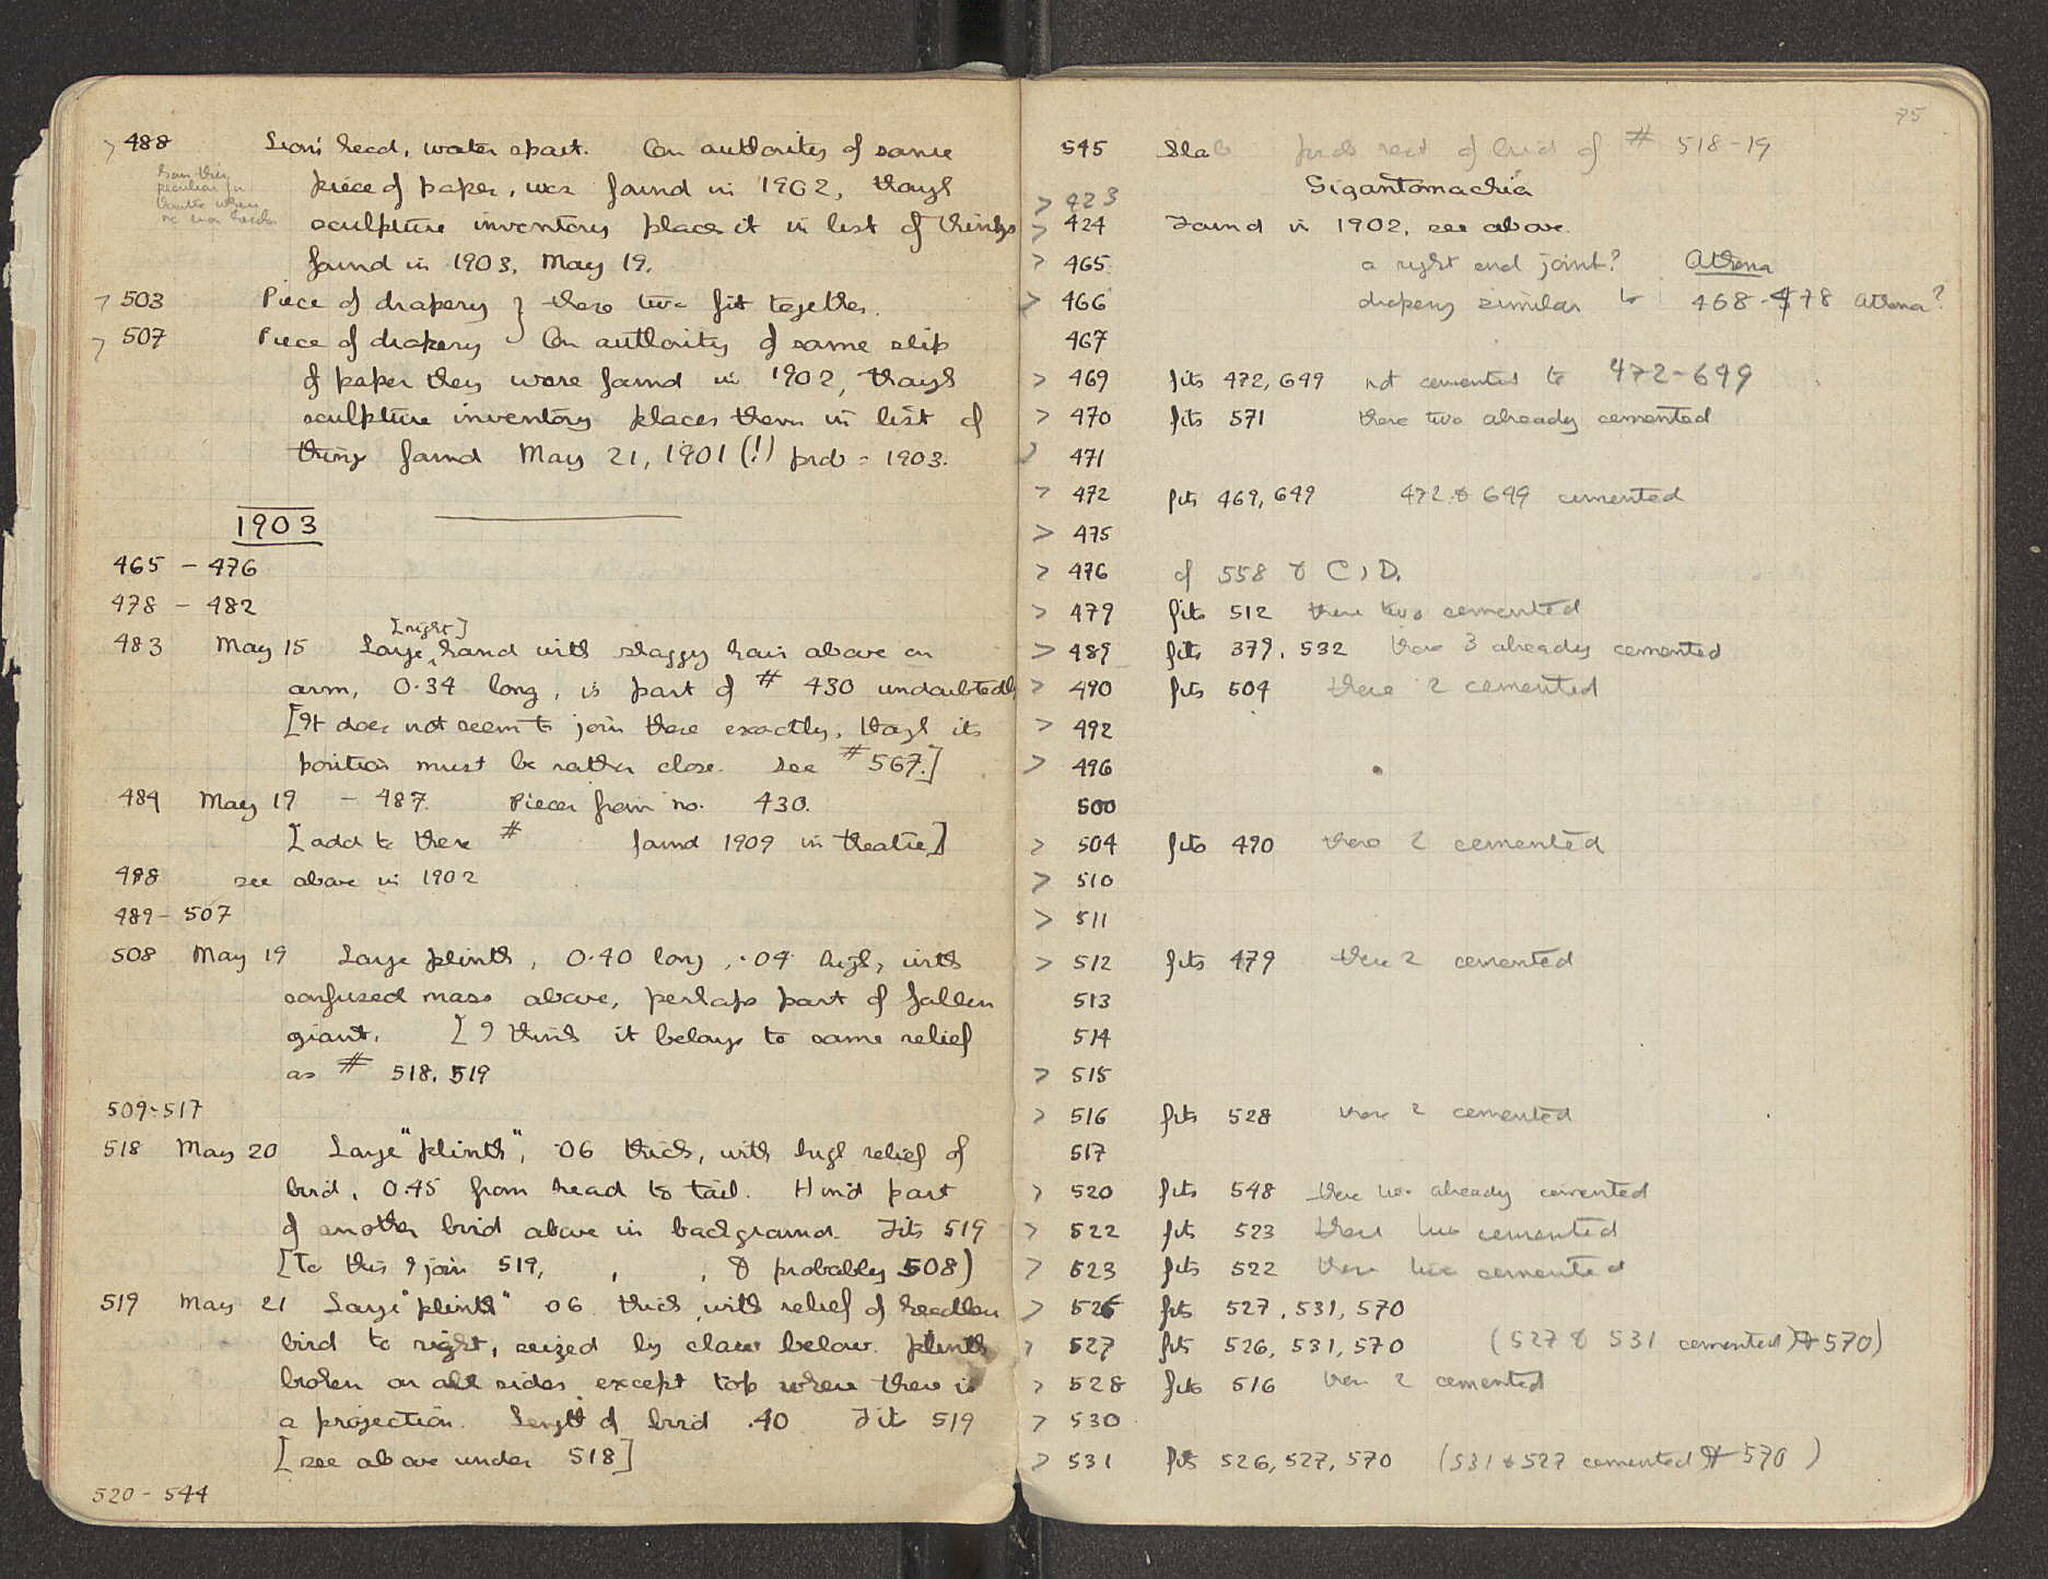 > 488 Lion's head, water spout. On authority of same
piece of paper, was found in 1902, though
sculpture inventory places it in list of things
found in 1903, May 19.
> 503 Piece of drapery } these two fit together.
> 507 Piece of drapery } On authority of same slip
of paper they were found in 1902, though
sculpture inventory places them in list of
things found May 21, 1901 (!) prob = 1903.
1903
465 - 476
478 - 482
[right]
483 May 15 Large hand with shaggy hair above on
arm, 0.34 long, is part of # 430 undoubtedly
[It does not seem to join there exactly, though its
position must be rather close. See # 567.]
484 May 19 - 487. Pieces from no. 430.
[add to these # found 1909 in theatre]
488 see above in 1902
489 - 507
508 May 19 Large plinth, 0.40 long, .04 high, with
confused mass above, perhaps part of fallen
giant. [I think it belongs to same relief
as # 518, 519
509-517
518 May 20 Large "plinth", .06 thick, with high relief of
bird, 0.45 from head to tail. Hind part
of another bird above in background. Fits 519
[To this I join 519, , , & probably 508)
519 May 21 Large "plinth" 06 thick, with relief of headless
bird to right, seized by claws below. Plinth
broken on all sides except top where there is
a projection. Length of bird .40 Fit 519
[see above under 518]
520 - 544
75
545 Slab of bird of # 518-19
Gigantomachia
> 423
> 424 Found in 1902, see above.
> 465 a right end joint? Athena
> 466 drapery similar to 468-478 Athena?
467
> 469 fits 472, 649 not cemented to 472-649
> 470 fits 571 these two already cemented
> 471
> 472 fits 469, 649 472 & 649 cemented
> 475
> 476 cf 558 & C, D.
> 479 fits 512 these two cemented
> 489 fits 379, 532 these 3 already cemented
> 490 fits 504 these 2 cemented
> 492
> 496
500
> 504 fits 490 these 2 cemented
> 510
> 511
> 512 fits 479 these 2 cemented
513
514
> 515
> 516 fits 528 these 2 cemented
517
> 520 fits 548 these two already cemented
> 522 fits 523 these two cemented
> 523 fits 522 these two cemented
> 526 fits 527, 531, 570
> 527 fits 526, 531, 570 (527 & 531 cemented) & 570)
> 528 fits 516 these 2 cemented
> 530
> 531 fits 526, 527, 570 (531 & 527 cemented & 570)